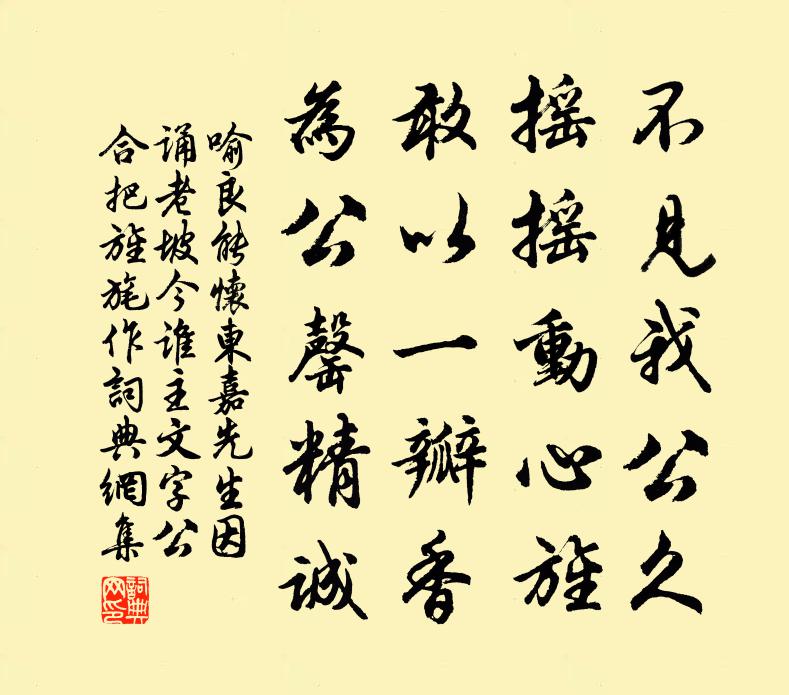 不見我公久
摇摇動心旌
敢以一瓣香
為公馨精誠
喻良能懷東嘉先生因
誦老坡今誰主文字公
合把旌旄作詞典網集
詞典網印